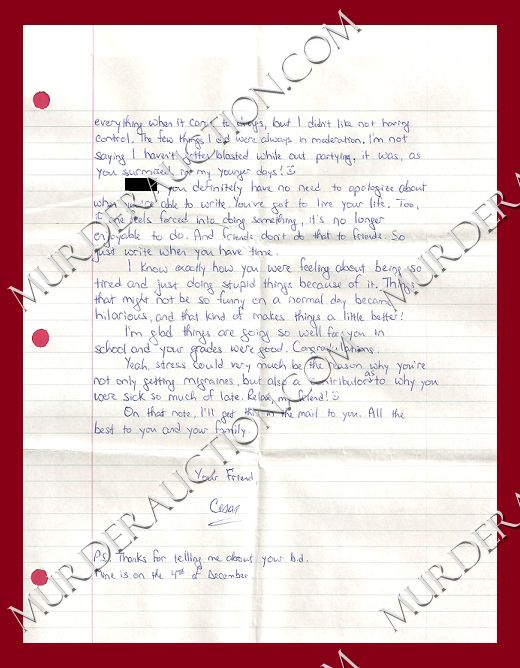 everything when it came to drugs, but I didn't like not having
control. The few things I did were always in moderation. I'm not
saying I haven't gotten blasted while out partying, it was, as
you surmised, in my younger days!
you definitely have no need to apologize about
when you're able to write. You've got to live your life. Too,
if one feels forced into doing something, it's no longer
enjoyable to do. And friends don't do that to friends. So
just write when you have time.
I know exactly how you were feeling about being so
tired and just doing stupid things because of it. Things
that might not be so funny on a normal day became
hilarious, and that kind of makes things a little better!
I'm glad things are going so well for you in
school and your grades were good. Congratulations.
Yeah, stress could very much be the reason why you're
not only getting migraines, but also a contributor as to why you
were sick so much of late. Relax, my friend!
On that note, I'll get this in the mail to you. All the
best to you and your family.
Your Friend,
Cesar
P.S. Thanks for telling me about your b.d.
Mine is on the 4th of December.
MURDERAUCTION.COM